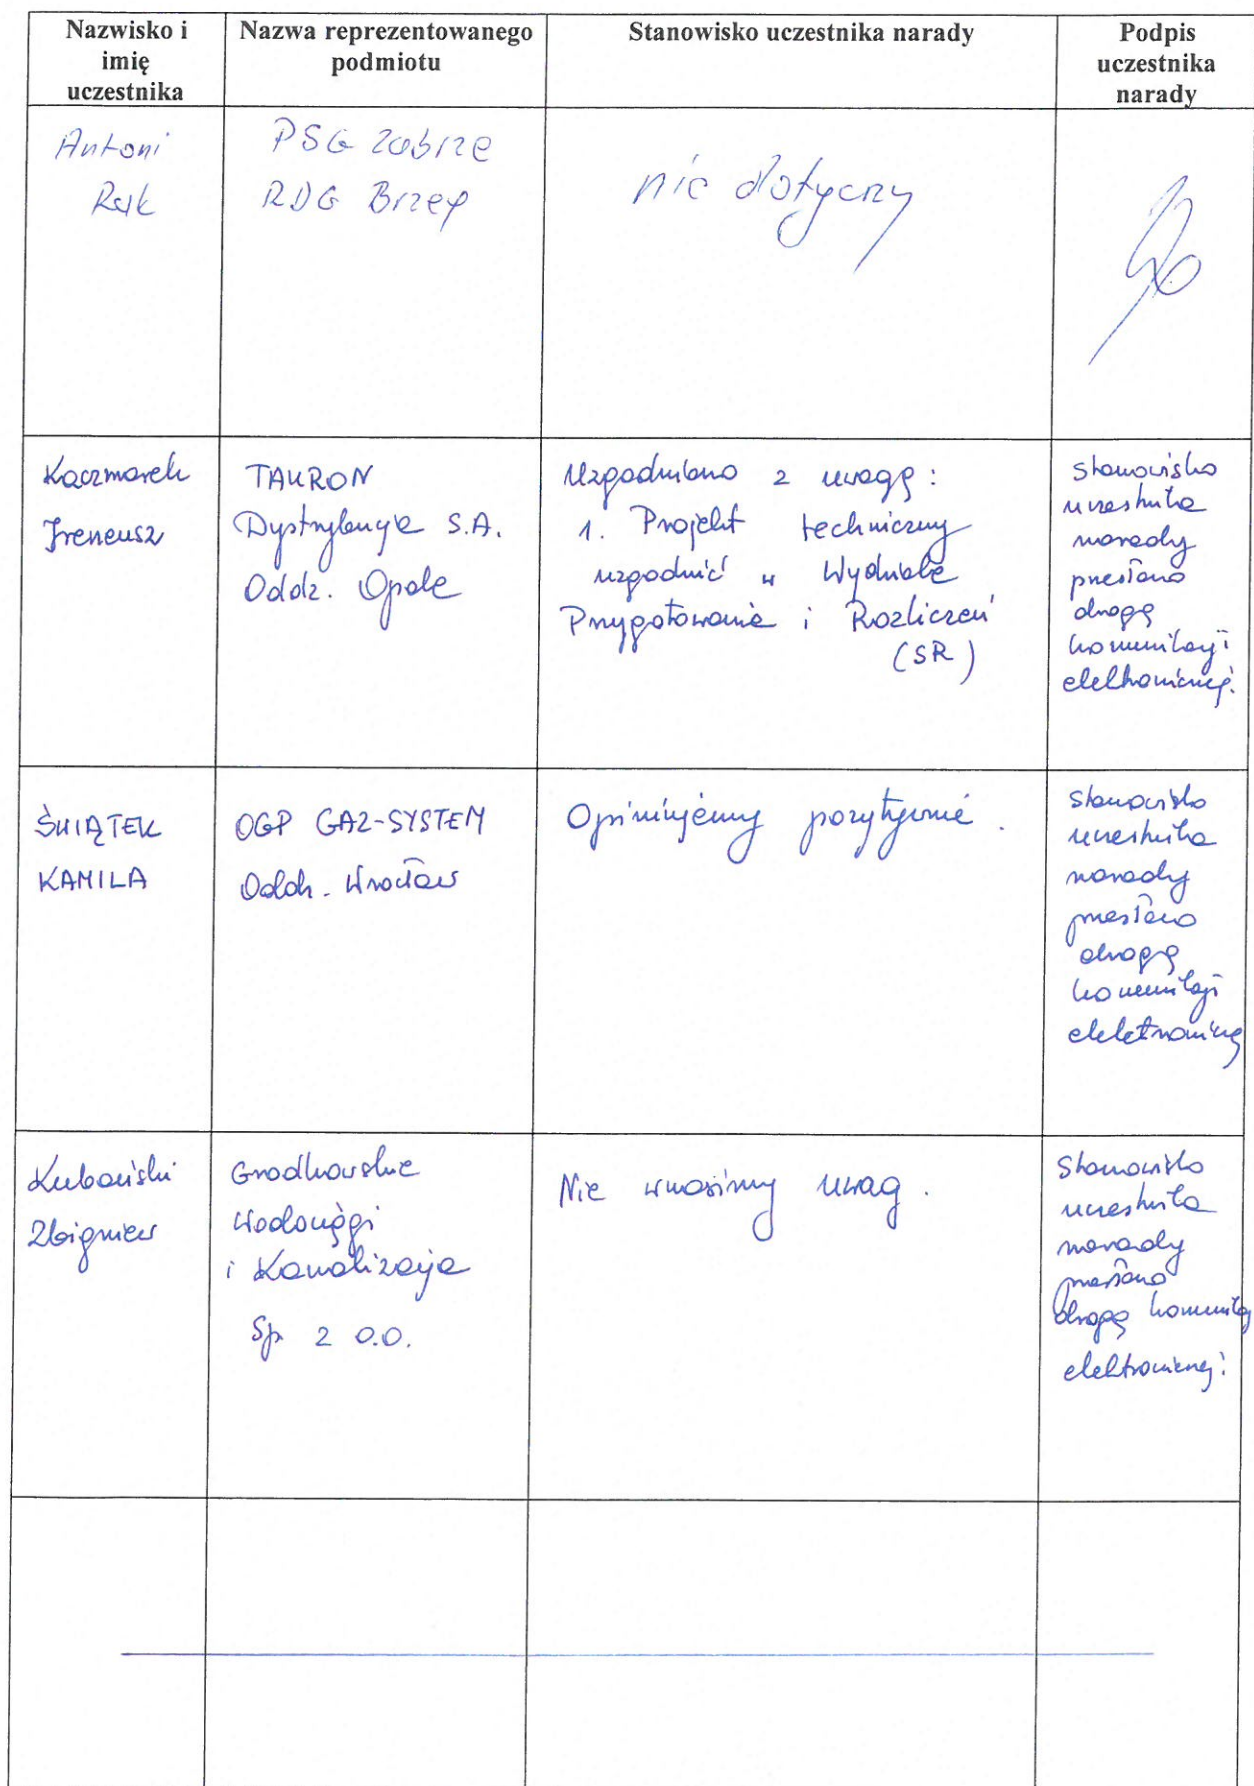 Nazwisko i
imię
uczestnika
Nazwa reprezentowanego
podmiotu
Stanowisko uczestnika narady
Podpis
uczestnika
narady
Antoni
Rak
PSG Zabrze
RDG Brzeg
nie dotyczy
Kaczmarek
Ireneusz
TAURON
Dystrybucja S.A.
Oddz. Opole
Uzgodniono z uwagą:
1. Projekt techniczny
uzgodnić w Wydziale
Przygotowania i Rozliczeń
(SR)
Stanowisko
uczestnika
narady
przesłano
drogą
komunikacji
elektronicznej.
ŚWIĄTEK
KAMILA
OGP GAZ-SYSTEM
Oddz. Wrocław
Opiniujemy pozytywnie.
Stanowisko
uczestnika
narady
przesłano
drogą
komunikacji
Zbigniew
Grodkowskie
Wodociągi
i Kanalizacja
Sp. z o.o.
Nie wnosimy uwag.
Stanowisko
uczestnika
narady
przesłano
drogą
elektronicznej.